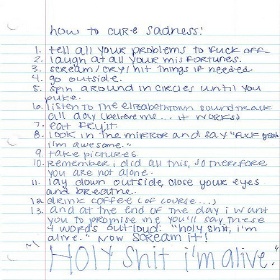 how to cure sadness:
1. tell all your problems to fuck off.
2. laugh at all your misfortunes.
3. scream/cry/hit things if needed.
4. go outside.
5. spin around in circles until you
puke.
6. listen to the elizabethtown soundtrack
all day (believe me... it works)
7. eat fruit!
8. look in the mirror and say "fuck yeah
i'm awesome."
9. take pictures.
10. remember i did all this, so therefore
you are not alone.
11. lay down outside, close your eyes
and breathe.
12. drink coffee (of course...)
13. and at the end of the day i want
you to promise me you'll say these
4 words outloud: "holy shit, i'm
alive." now scream it!
"Holy shit i'm alive."